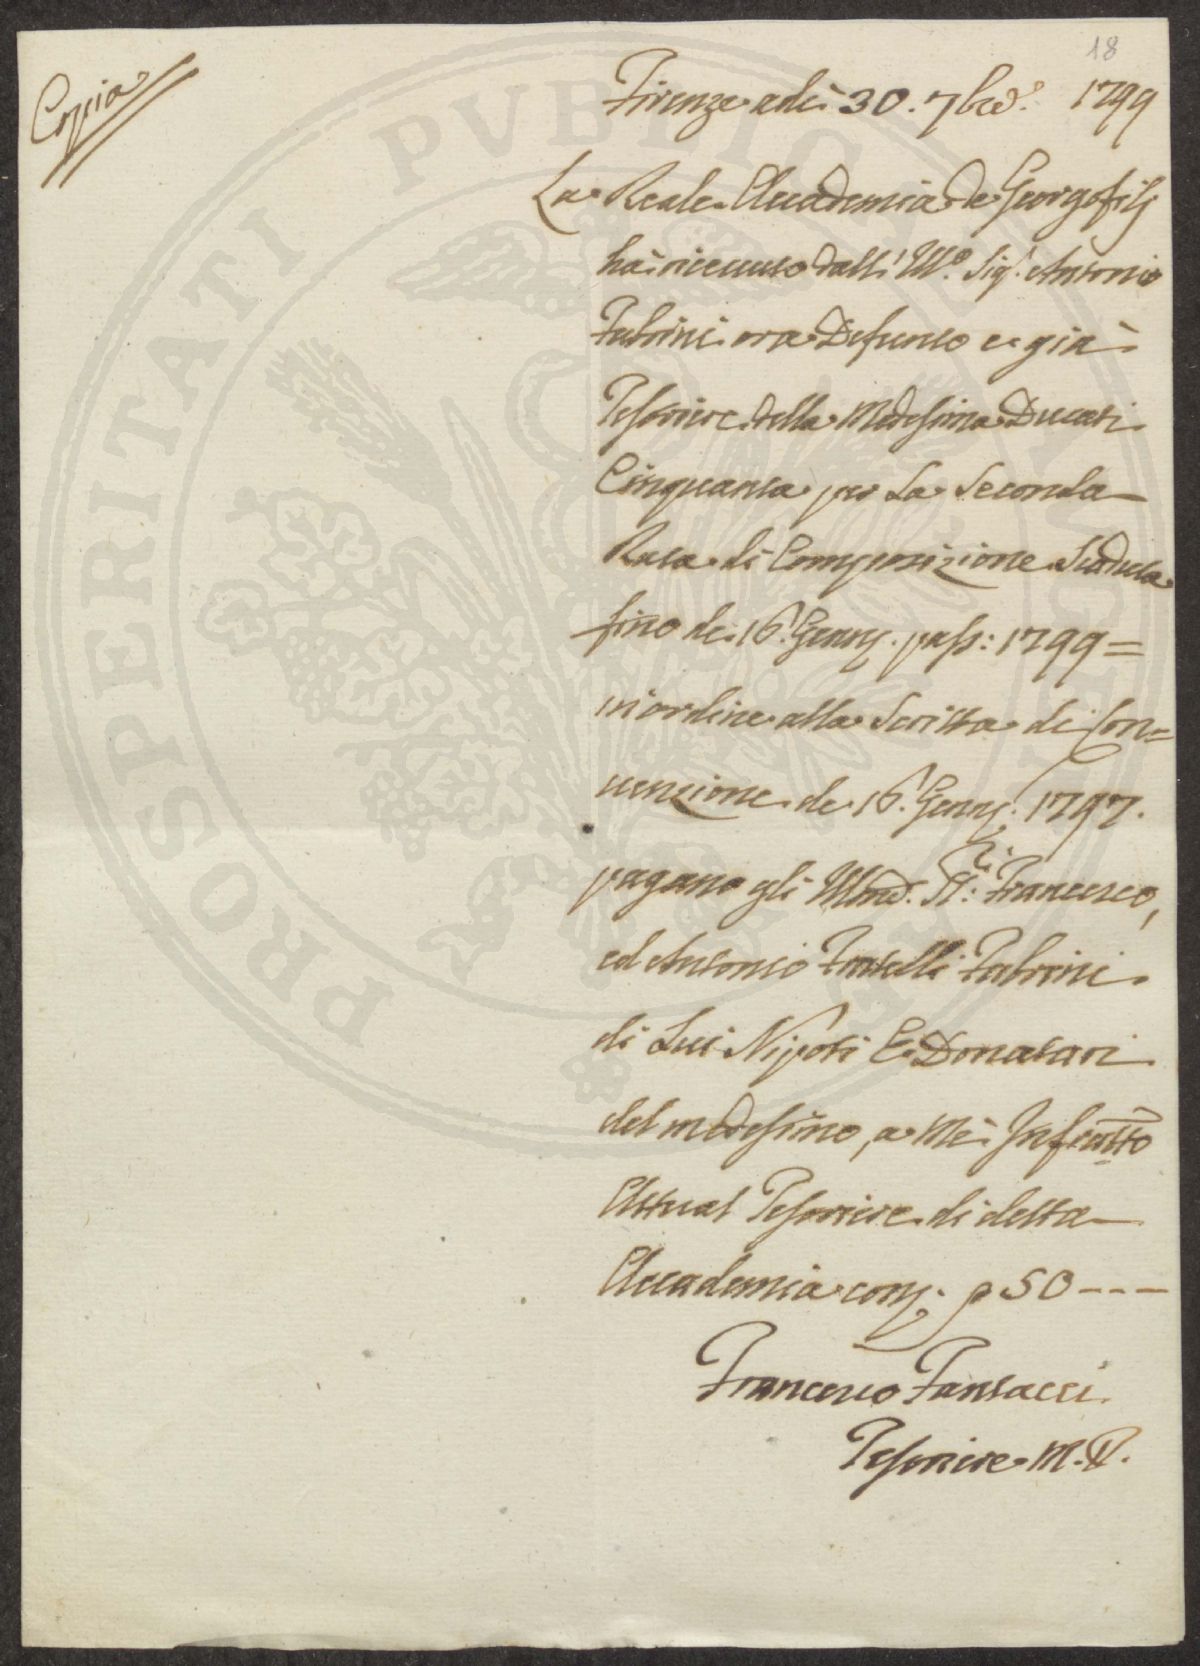 18
Copia
Firenze adi 30. 7bre. 1799
La Reale Accademia de Georgofilj
ha ricevuto dall' Ill.o Sig.r Antonio
Fabrini ora Defunto e già
Tesoriere della Medesima Ducati
Cinquanta per La Seconda
Rata di Composizione Scaduta
fino de 16. Genn.o pass: 1799 =
in ordine alla Scritta di Con=
venzione de 16. Genn.o 1797.
pagano gli Ill.mi SS.ri Francesco,
ed Antonio Fratelli Fabrini
di Lui Nipoti E Donatari
del medesimo, a Me Infratto
Attual Tesoriere di detta
Accademia con.ti p 50 - - -
Francesco Pantacci
Tesoriere M. P.
PROSPERITATI PVBLICAE AVGENDAE